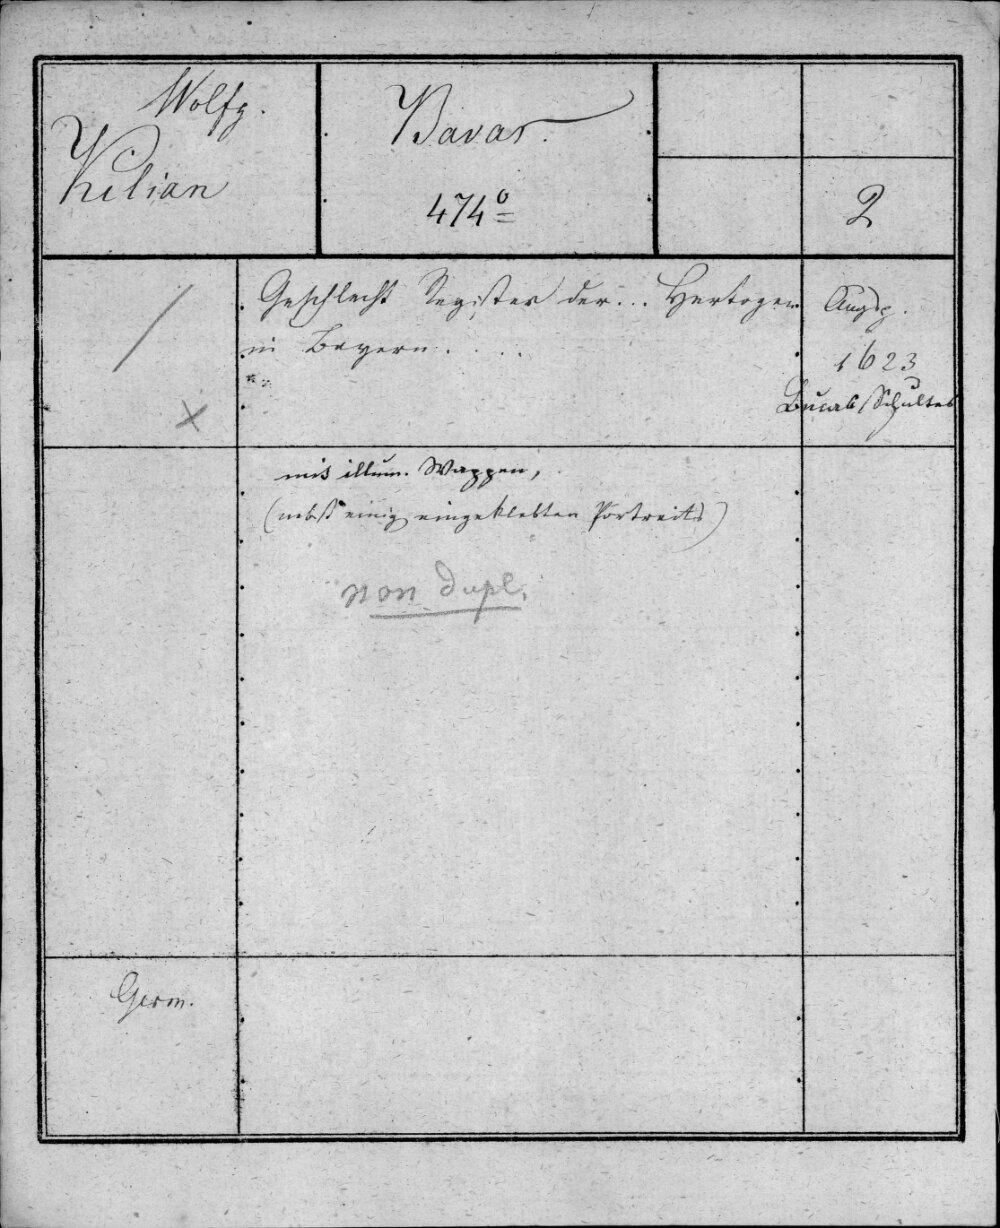 Wolfg.
Kilian
Bavar.
474º
2
Geschlecht Register der ... Hertogen
in Bayern . . . .
Augsp.
1623
Lucas Schultes
mit illum. Wappen,
(nebst einig eingeklebten Portreits)
non dupl.
Germ.